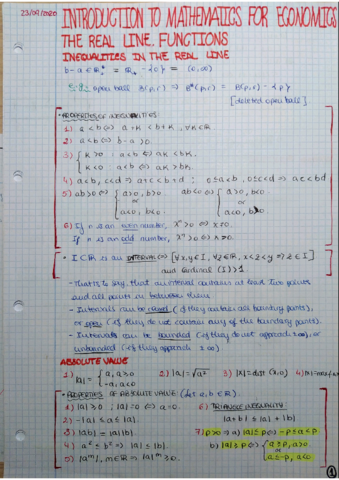 23/09/2020
INTRODUCTION TO MATHEMATICS FOR ECONOMICS
THE REAL LINE. FUNCTIONS
INEQUALITIES IN THE REAL LINE
open ball B(p,r) ⇒ B*(p,r) = B(p,r) - {p}
[deleted open ball]
· PROPERTIES OF INEQUALITIES
1) a<b ⇔ a+k < b+k, ∀k∈ℝ
2) a<b ⇔ b-a>0.
3) { k>0 : a<b ⇔ ak<bk.
k<0 : a<b ⇔ ak>bk.
4) a<b, c<d ⇒ a+c<b+d ; 0≤a<b, 0≤c<d ⇒ ac<bd
5) ab>0 ⇔ { a>0, b>0. ab<0 ⇔ { a>0, b<0.
or or
a<0, b<0. a<0, b>0.
6) If n is an even number, xⁿ>0 ⇔ x≠0.
If n is an odd number, xⁿ>0 ⇔ x>0.
· I⊂ℝ is an INTERVAL ⇔ [∀x,y∈I, ∀z∈ℝ, x<z<y ⇒ z∈I]
and Cardinal (I)>1
- That is to say, that an interval contains at least two points
and all points in between them.
- Intervals can be closed (if they contain all boundary points),
or open (if they do not contain any of the boundary points).
- Intervals can be bounded (if they do not approach ±∞), or
unbounded (if they approach ±∞)
ABSOLUTE VALUE
1) |a| = { a, a≥0 2) |a| = √a² 3) |a| = dist (a,0)
-a, a<0
· PROPERTIES OF ABSOLUTE VALUE (Let a, b ∈ ℝ).
1) |a|≥0 ; |a|=0 ⇔ a=0. 6) TRIANGLE INEQUALITY
2) -|a| ≤ a ≤ |a|. |a+b| ≤ |a| + |b|
3) |ab| = |a||b|. 7) p>0 ⇒ a) |a|≤p ⇔ -p≤a≤p
4) a²≤b² ⇔ |a|≤|b|. b) |a|≥p ⇔ { a≥p, a>0.
or
a≤-p, a<0
1